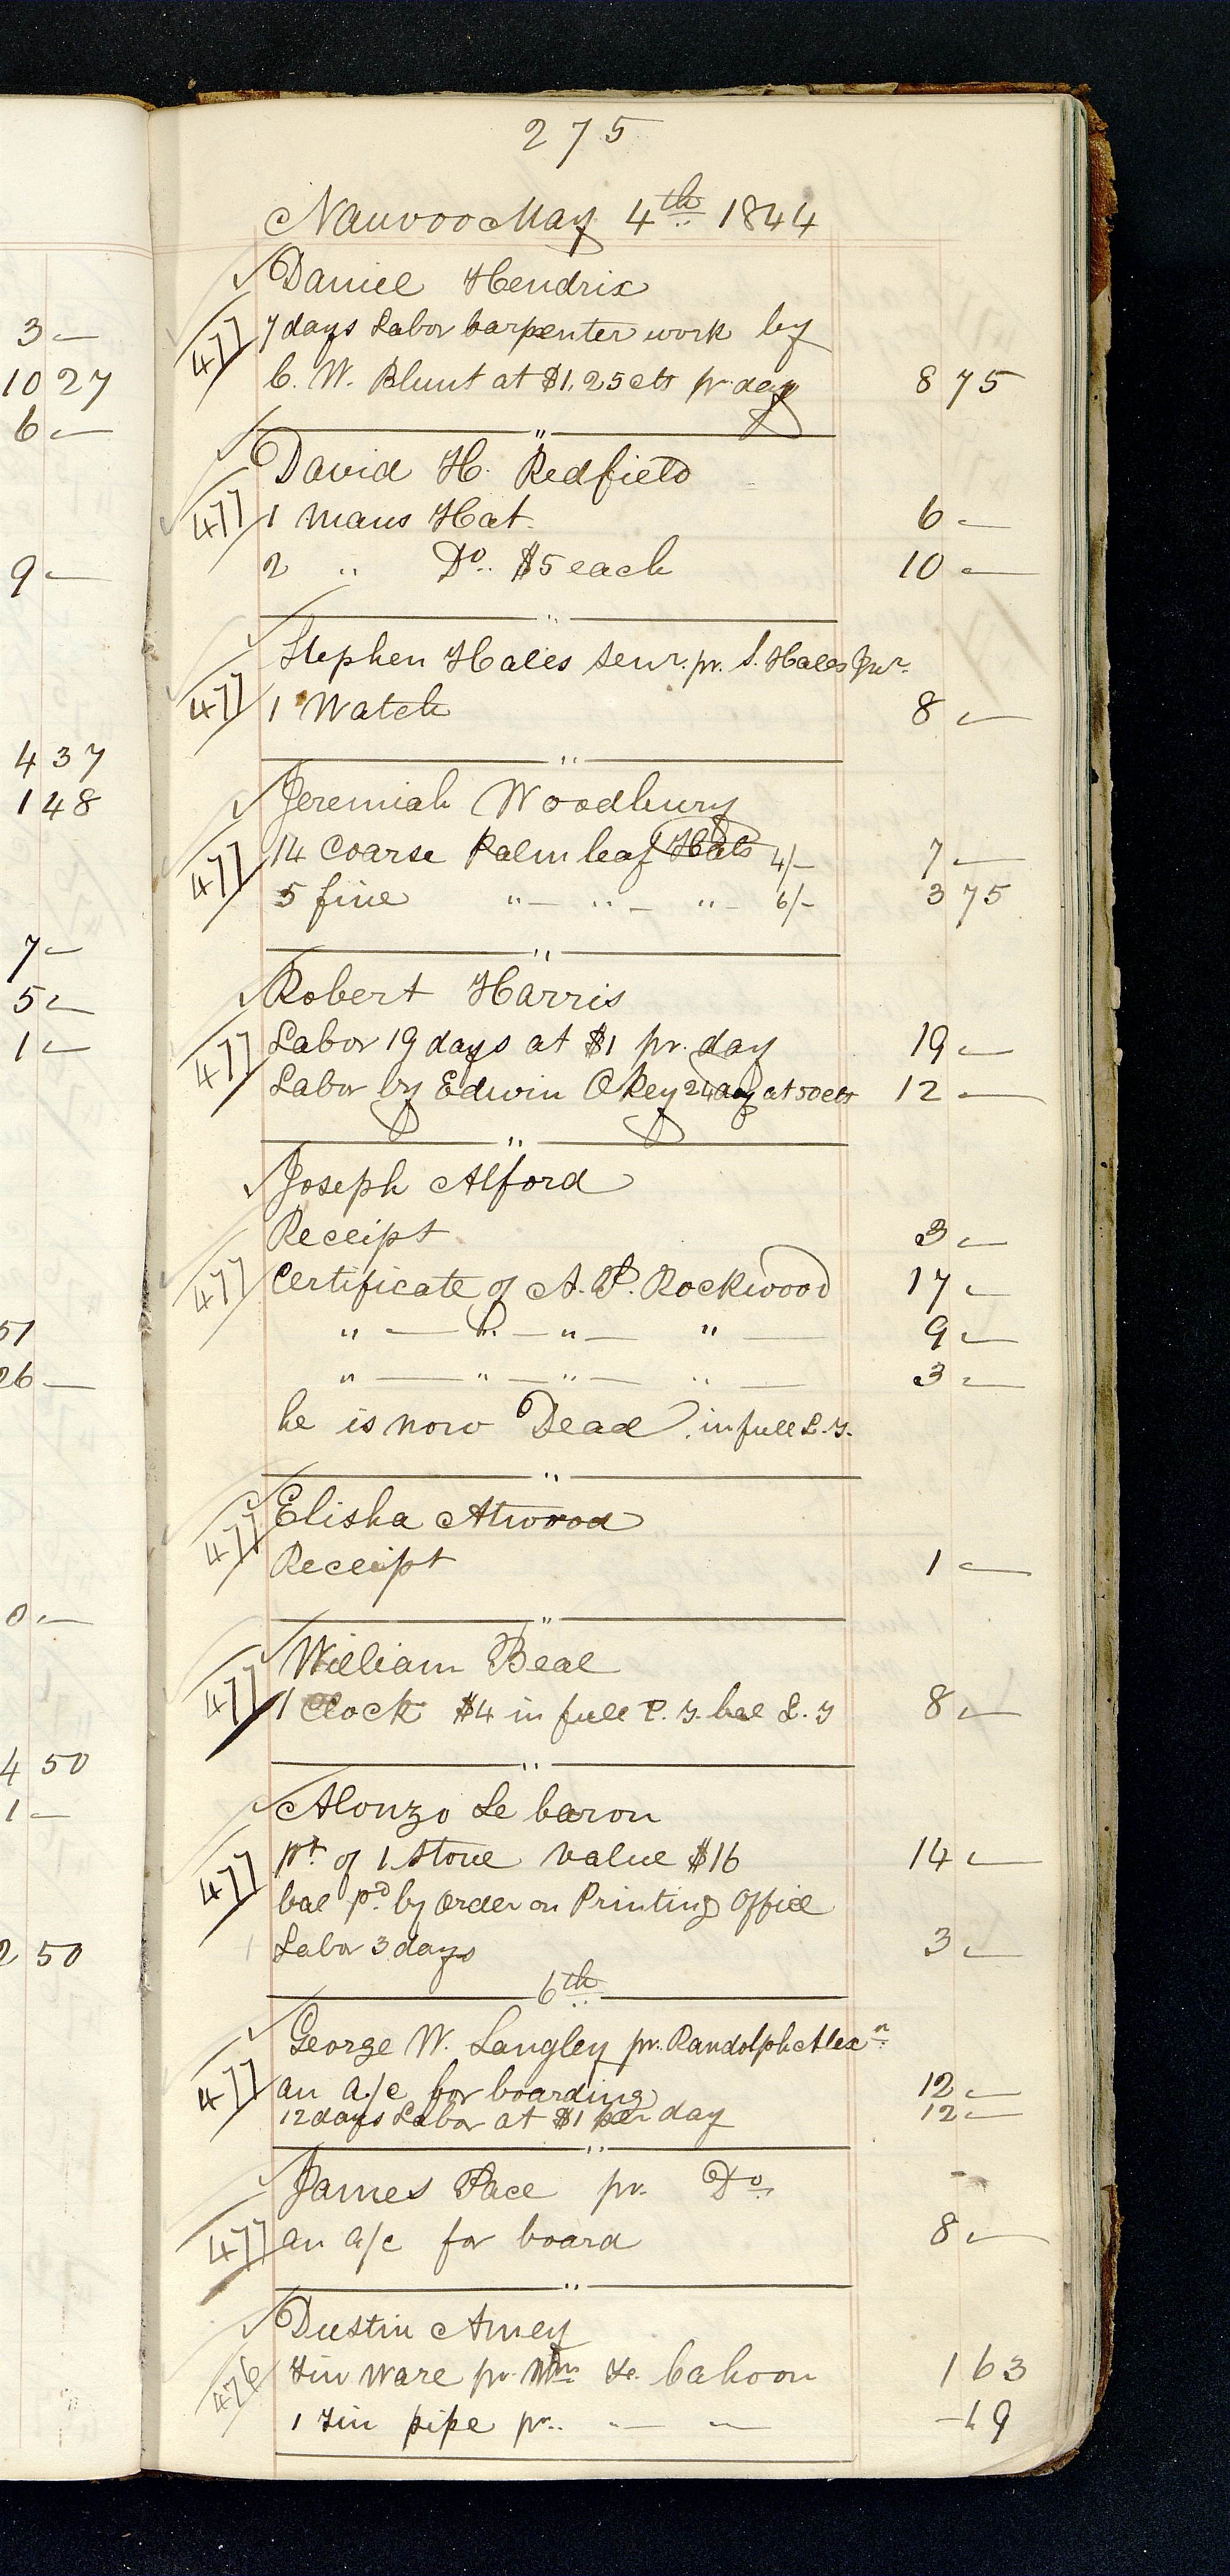 3 —
10 27
6 —
9 —
4 37
1 48
7 —
5 —
1 —
51
26 —
0 —
4 50
1 —
2 50
275
Nauvoo May 4th 1844
Daniel Hendrix
477 7 days Labor Carpenter work by
C. W. Blunt at $1,25 cts pr day 8 75
"
David H. Redfield
477 1 Mans Hat 6 —
2 " Do. $5 each 10 —
"
Stephen Hales Senr. pr. S. Hales Jnr.
477 1 Watch 8 —
"
Jeremiah Woodbury
477 14 Coarse Palm leaf Hats 4/- 7 —
5 fine " — " — " — 6/- 3 75
"
Robert Harris
477 Labor 19 days at $1 pr. day 19 —
Labor by Edwin Okey 24 day at 50 cts 12 —
"
Joseph Alford
Receipt 3 —
477 Certificate of A. P. Rockwood 17 —
" — " — " — " — 9 —
" — " — " — " — 3 —
he is now Dead. in full L. T.
"
Elisha Atwood
477 Receipt 1 —
"
William Beal
477 1 Clock $4 in full P. T. bal L. T 8 —
"
Alonzo Le baron
477 pt. of 1 Stove value $16 14 —
bal pd. by Order on Printing Office
Labor 3 days 3 —
6th
George W. Langley pr. Randolph Alexn
477 an a/c for boarding 12 —
12 days Labor at $1 per day 12 —
"
James Pace pr. Do.
477 an a/c for board 8 —
"
Dustin Amey
476 Tin Ware pr. Wm F. Cahoon 1 63
1 Tin pipe pr. " — " — - 19